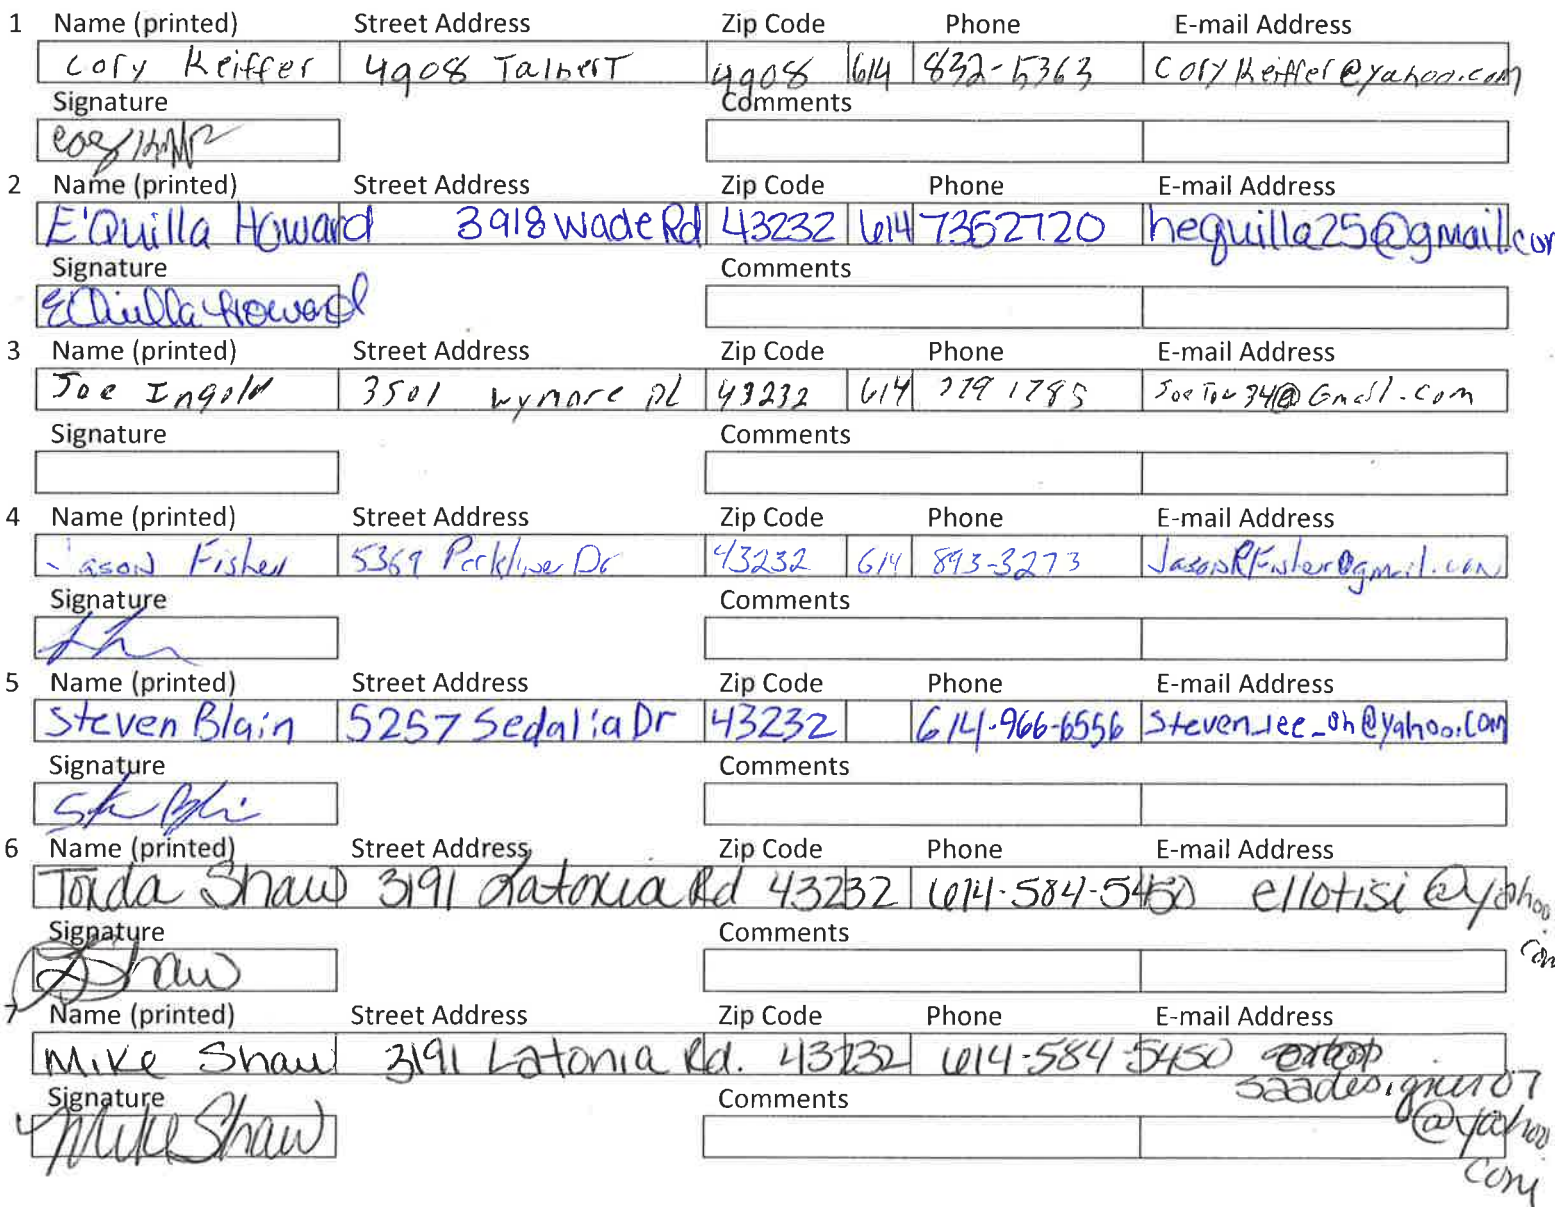 1 Name (printed) Street Address Zip Code Phone E-mail Address
Cory Keiffer 4908 Talbert 4908 614 832-5363 CoryKeiffer@yahoo.com
Signature Comments
2 Name (printed) Street Address Zip Code Phone E-mail Address
E'Quilla Howard 3918 Wade Rd 43232 614 7352720 hequilla25@gmail.com
Signature Comments
E'Quilla Howard
3 Name (printed) Street Address Zip Code Phone E-mail Address
Joe Ingold 3501 Wymore Pl 43232 614
Signature Comments
4 Name (printed) Street Address Zip Code Phone E-mail Address
Jason Fisher 5369 Parkline Dr 43232 614 893-3273 JasonRFisher@gmail.com
Signature Comments
5 Name (printed) Street Address Zip Code Phone E-mail Address
Steven Blain 5257 Sedalia Dr 43232 614-966-6556 Steven_lee_oh@yahoo.com
Signature Comments
6 Name (printed) Street Address Zip Code Phone E-mail Address
Tonda Shaw 3191 Latonia Rd 43232 614-584-5450 ellotisi@yahoo.com
Signature Comments
Shaw
7 Name (printed) Street Address Zip Code Phone E-mail Address
Mike Shaw 3191 Latonia Rd. 43232 614-584-5450
@yahoo.com
Signature Comments
Mike Shaw